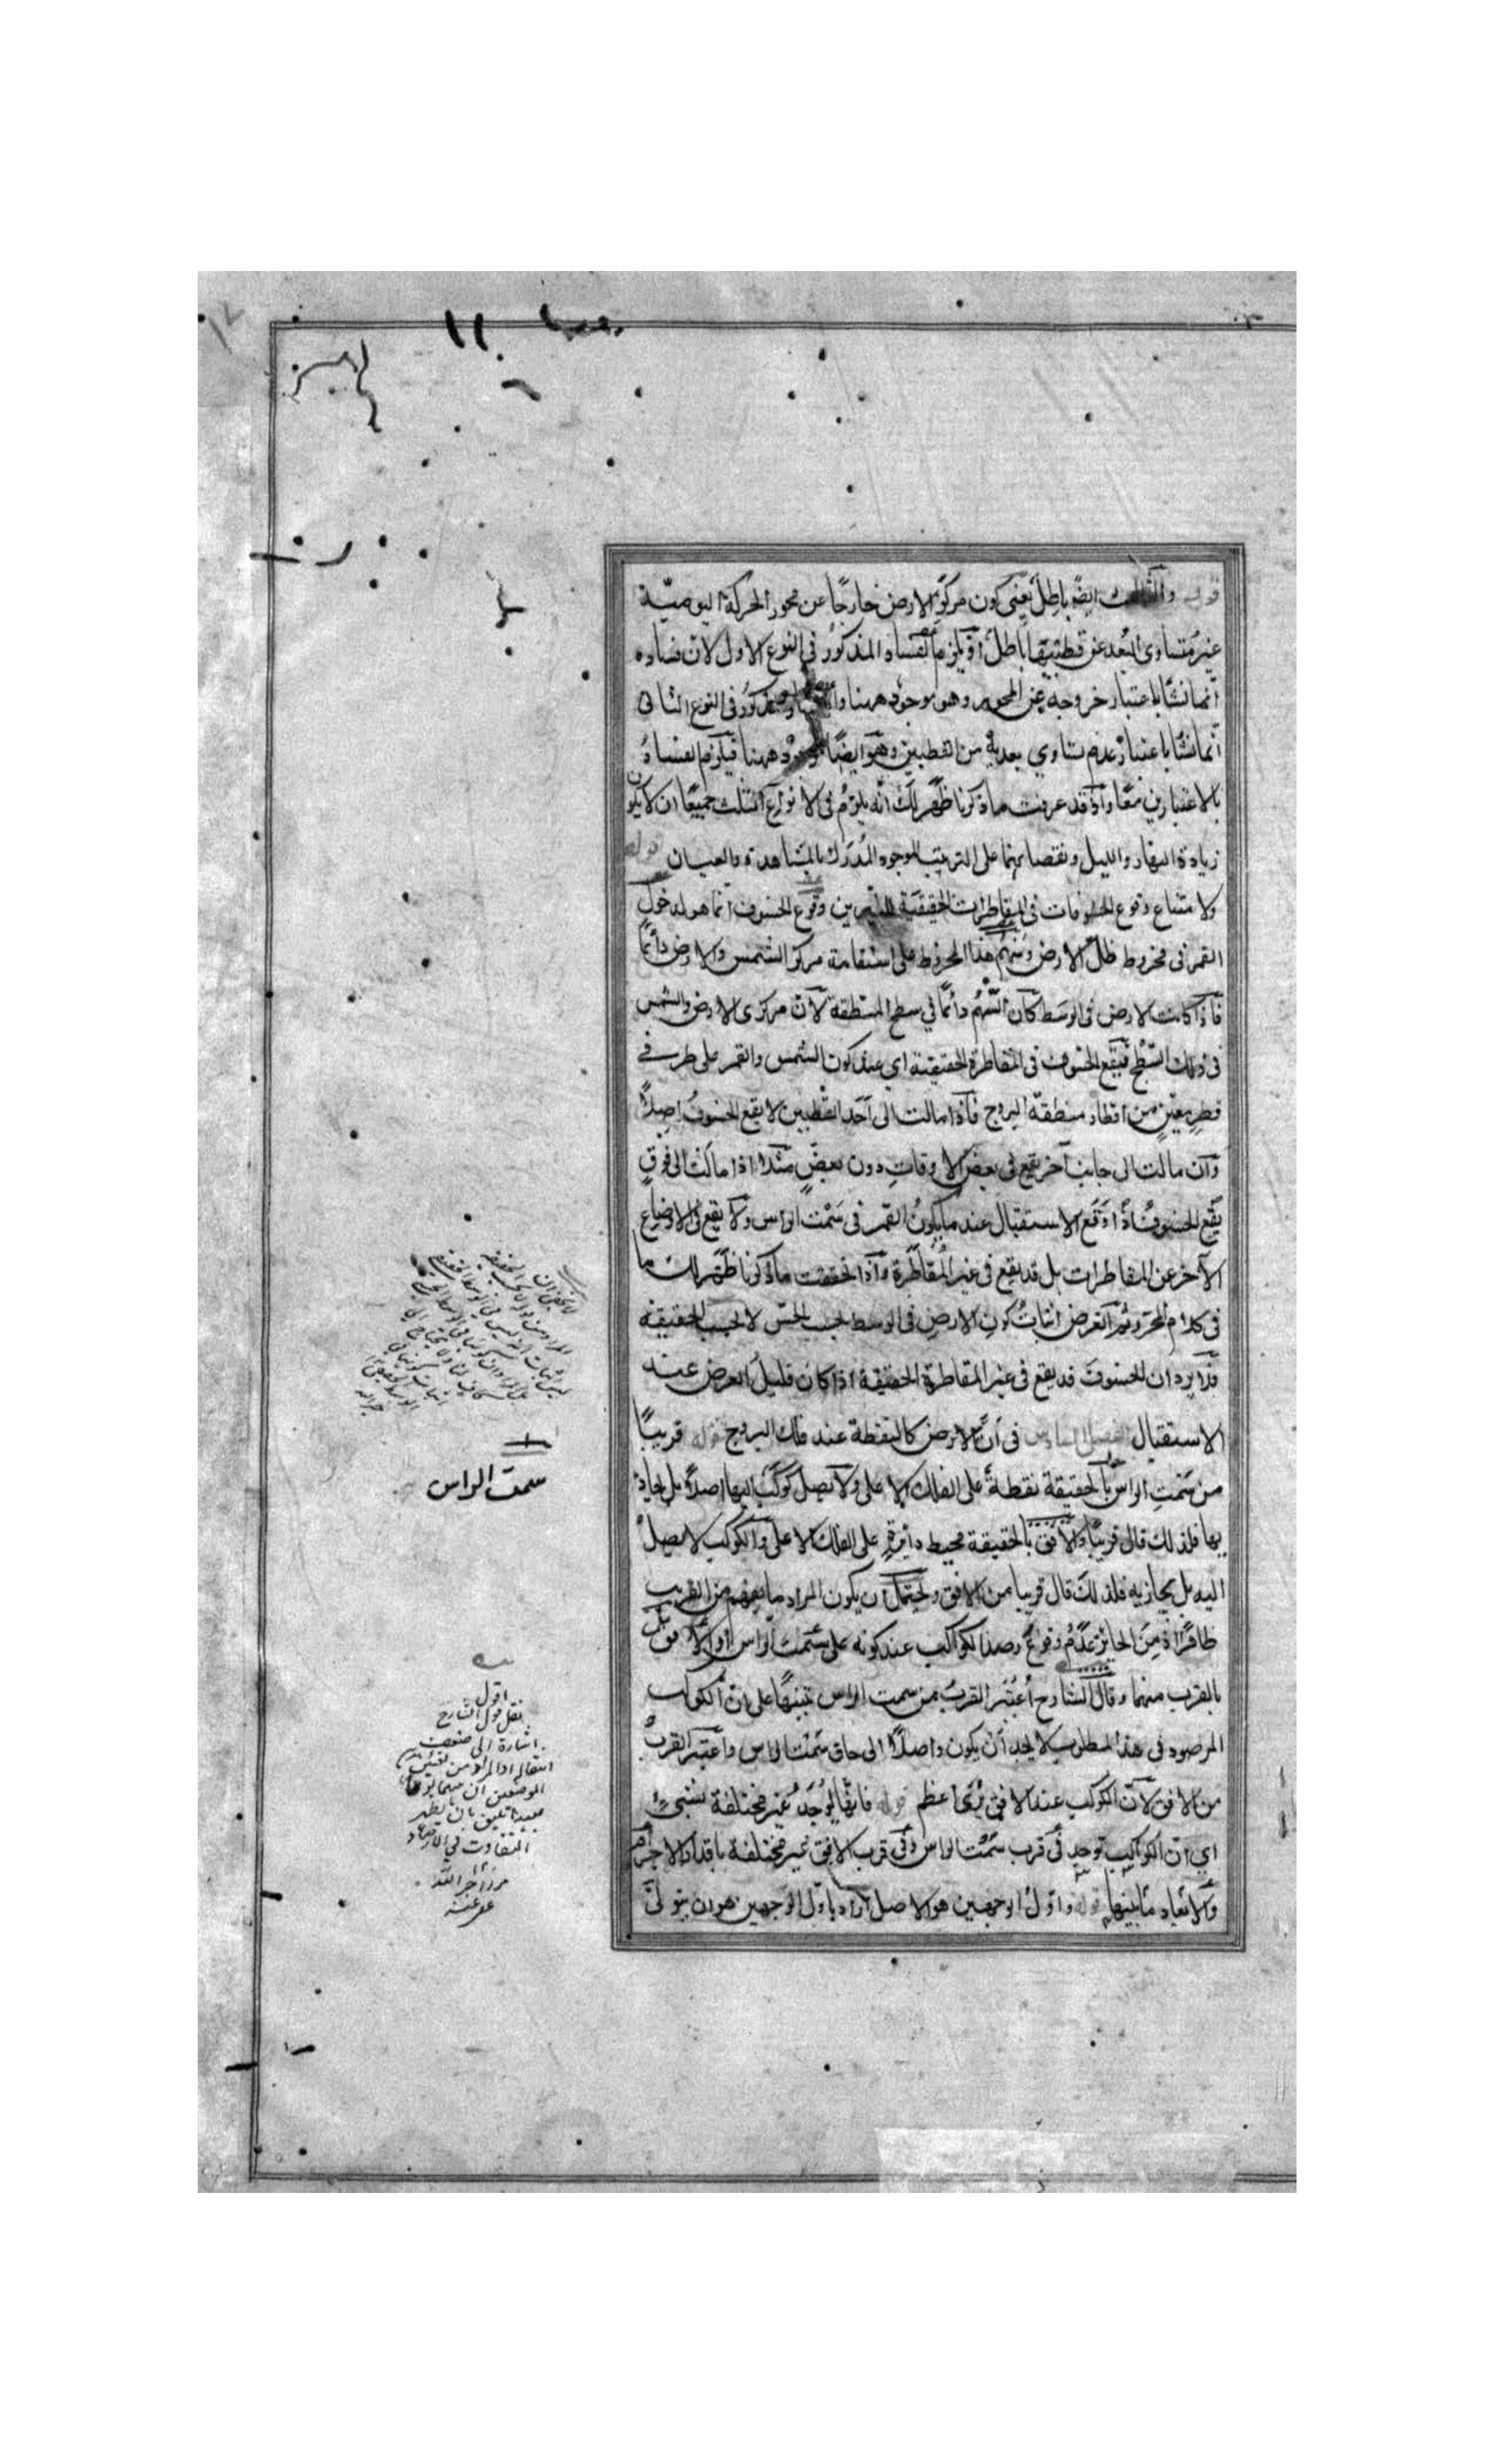 قوله والثالث ايضًا باطل يعني كون مركز الارض خارجًا عن محور الحركة اليومية
غير متساوى البعد عن قطبيها باطل اذ يلزم الفساد المذكور في النوع الاول لان فساده
انما نشأ باعتبار خروجه عن المحور وهو موجود ههنا والفساد المذكور فى النوع الثانى
انما نشأ باعتبار عدم تساوي بعديه من القطبين وهو ايضًا موجود ههنا فيلزم الفساد
بالاعتبارين معًا واذ قد عرفت ما ذكرنا ظهر لك انه يلزم فى الانواع الثلث جميعًا ان لا يكون
زيادة النهار والليل ونقصانهما على الترتيب الموجود المدرك بالمشاهدة والعيان قوله
ولامتناع وقوع الخسوفات فى المقاطرات الحقيقية للنيرين وقوع الخسوف انما هو لدخول
القمر فى مخروط ظل الارض وسهم هذا المخروط على استقامة مركز الشمس والارض دائمًا
فاذا كانت الارض فى الوسط كان السهم دائمًا في سطح المنطقة لان مركزى الارض والشمس
فى ذلك السطح فيقع الخسوف فى المقاطرة الحقيقية اي عند كون الشمس والقمر على طرفي
قطر معين من اقطار منطقة البروج فاذا مالت الى احد القطبين لا يقع الخسوف اصلاً
وان مالت الى جانب آخر يقع فى بعض الاوقات دون بعض مثلا اذا مالت الى فوق
يقع الخسوف اذا وقع الاستقبال عند ما يكون القمر فى سمت الراس ولا يقع فى الاوضاع
الآخر عن المقاطرات بل قد يقع فى غير المقاطرة واذا تحققت ما ذكرنا ظهر لك ما
فى كلام المحرر ثم الغرض اثبات كون الارض فى الوسط بحسب الحس لا بحسب الحقيقة
فلا يرد ان الخسوف قد يقع فى غير المقاطرة الحقيقية اذا كان قليل العرض عند
الاستقبال الفصل السادس فى ان الارض كالنقطة عند فلك البروج قوله قريبًا
من سمت الراس بالحقيقة نقطة على الفلك الاعلى ولا يصل كوكب اليها اصلاً بل يحاذ
يها فلذلك قال قريبًا والافق بالحقيقة محيط دايرة على الفلك الاعلى والكوكب لا يصل
اليه بل يحازيه فلذلك قال قريبا من الافق ويحتمل ان يكون المراد ما يفهم من القريب
ظاهرًا اذ من الجايز عدم وقوع رصد الكواكب عند كونه على سمت الراس او الافق بل
بالقرب منهما وقال الشارح اعتبر القرب من سمت الراس تنبيهًا على ان الكواكب
المرصود فى هذا المطلوب لا يجب ان يكون واصلاً الى حاق سمت الراس واعتبر القرب
من الافق لان الكوكب عند الافق يرى اعظم قوله فانها يوجد غير مختلفة بشيء
اي ان الكواكب توجد فى قرب سمت الراس وفى قرب الافق غير مختلفة باقدار الاجرام
والابعاد ما بينها قوله واول الوجهين هو الاصل اراد باول الوجهين هو ان يتولى
سمت الراس
اقول
نقل قول الشارح
اشارة الى ضعف